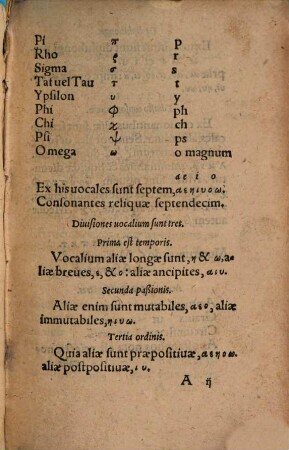 Pi π p
Rho ρ r
Sigma σ s
Taf uel Tau τ t
Ypsilon υ y
Phi φ ph
Chi χ ch
Psi ψ ps
Omega ω o magnum
a e i o
Ex his uocales sunt septem, α ε η ι υ ο ω.
Consonantes reliquæ septendecim.
Diuisiones uocalium sunt tres.
Prima est temporis.
Vocalium aliæ longæ sunt, η & ω, a-
liæ breues, ε, & ο: aliæ ancipites, α ι υ.
Secunda paßionis.
Aliæ enim sunt mutabiles, α ε ο, aliæ
immutabiles, η ι υ ω.
Tertia ordinis.
Quia aliæ sunt præpositiuæ, α ε η ο ω.
aliæ postpositiuæ, ι υ.
A ij